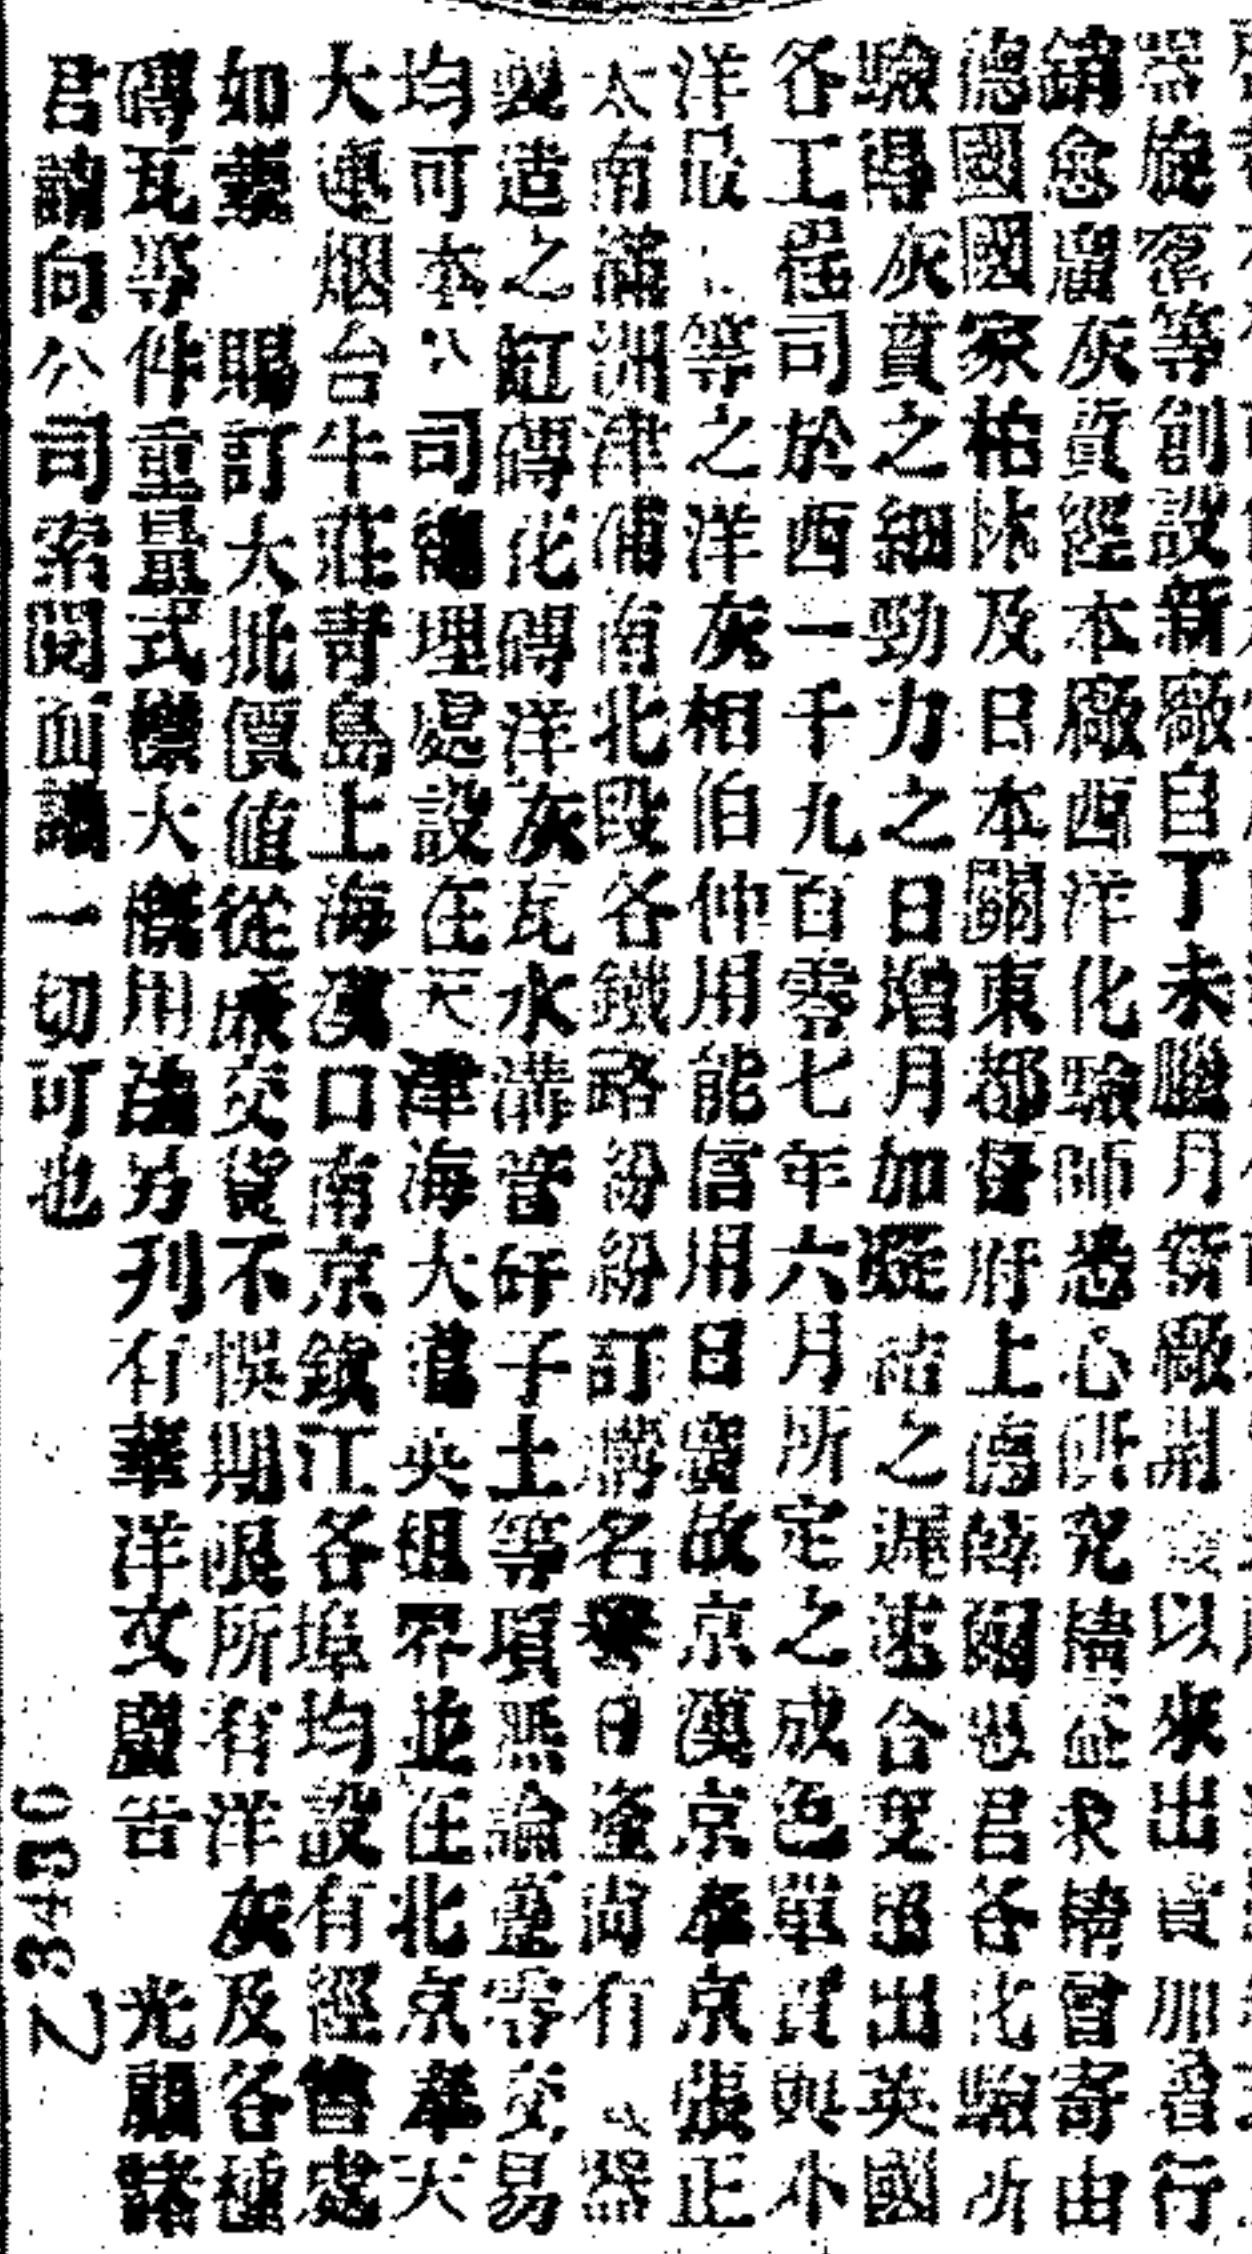 器旋窰等創設新廠自丁未臘月新廠開 以來出貨加著行
銷愈廣灰質經本廠西洋化驗師悉心研究精益求精曾寄由
德國國家柏林及日本關東都督府上海 國也君各化驗所
驗得灰質之細勁力之日增月加凝結之遲速合並超出英國
各工程司於西一千九百零七年六月所定之成色單貨與外
洋最 等之洋灰相伯仲用能信用日廣故京漢京奉京張正
太南滿洲津浦南北段各鐵路紛紛訂購名譽日隆尚有 器
製造之缸磚花磚洋灰瓦水溝管矸子土等項無論躉零交易
均可本公司總理處設在天津海大道英租界並在北京奉天
大連烟台牛莊青島上海漢口南京鎮江各埠均設有經售處
如蒙 賜訂大批價值從廉交貨不悞期限所有洋灰及各種
磚瓦等件重量式樣大概用法另列有華洋文廣告 光顧諸
君請向公司索閱面議一切可也
Z3436